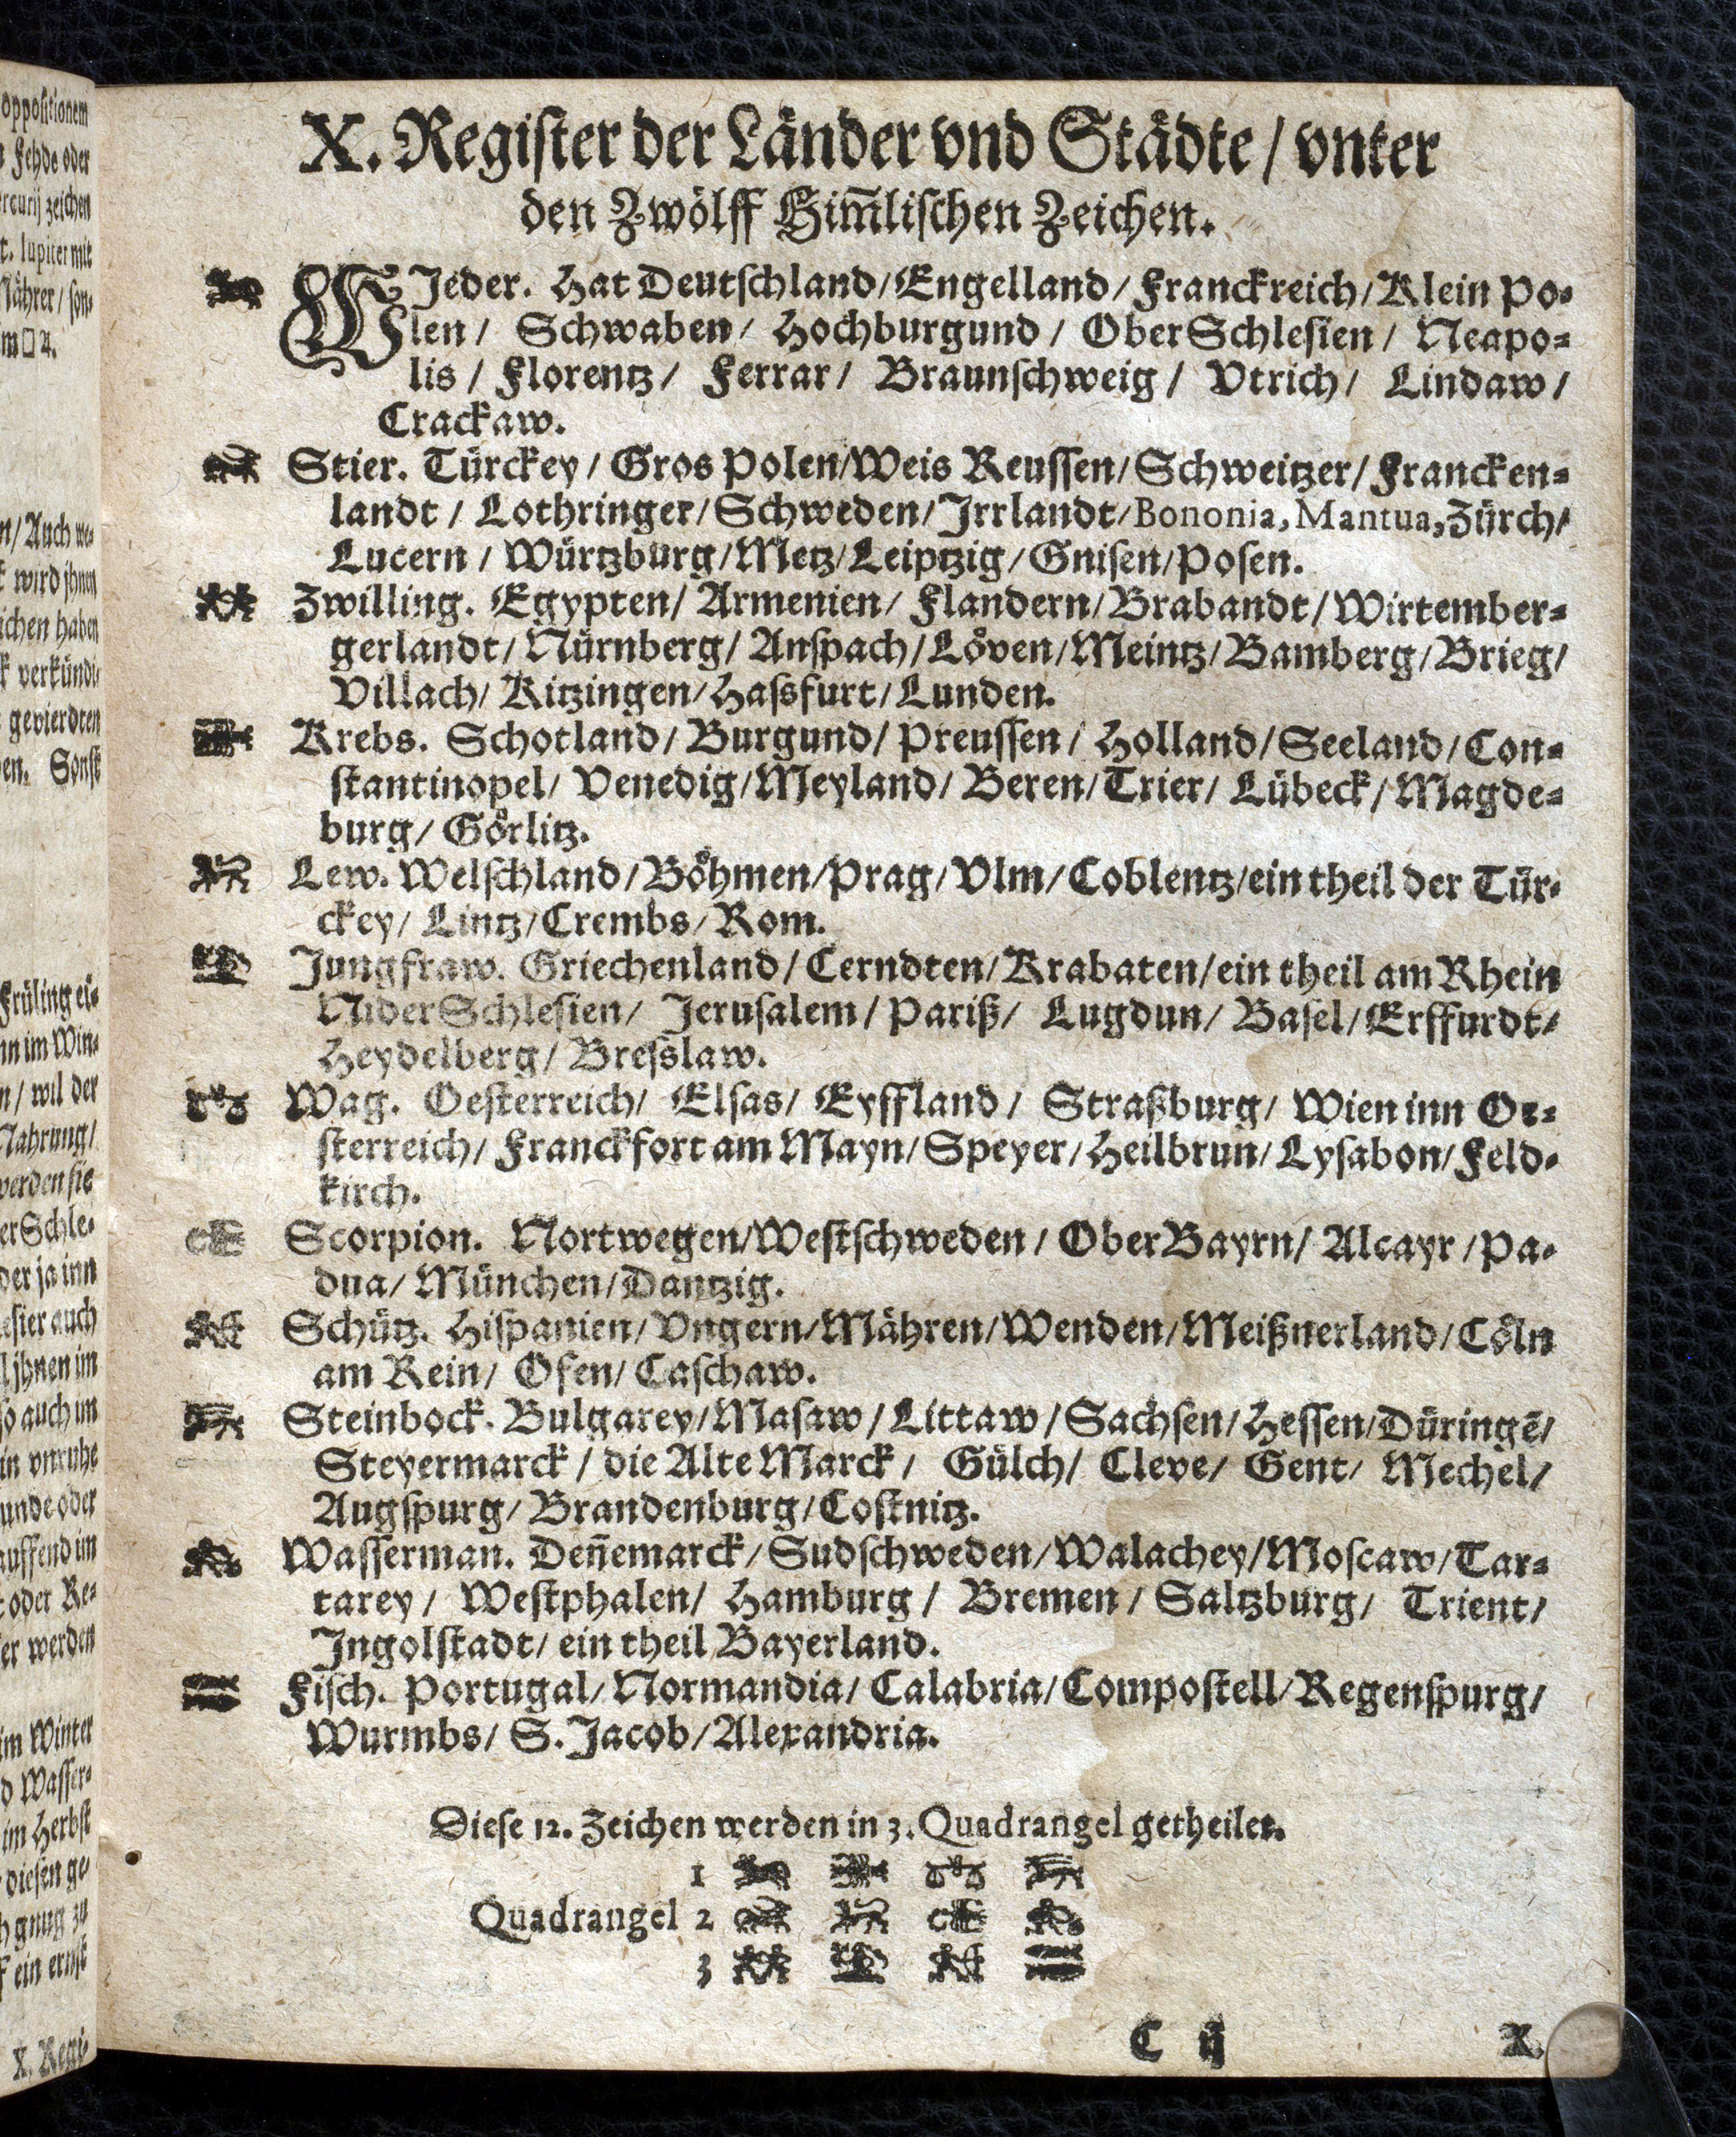 X. Register der Länder vnd Städte / vnter
den Zwölff Him̄lischen Zeichen.
WJeder. Hat Deutschland / Engelland / Franckreich / Klein Po-
len / Schwaben / Hochburgund / OberSchlesien / Neapo-
lis / Florentz / Ferrar / Braunschweig / Vtrich / Lindaw /
Crackaw.
Stier. Türckey / Gros Polen / Weis Reussen / Schweitzer / Francken-
landt / Lothringer / Schweden / Jrrlandt / Bononia, Mantua, Zürch /
Lucern / Würtzburg / Metz / Leiptzig / Gnisen / Posen.
Zwilling. Egypten / Armenien / Flandern / Brabandt / Wirtember-
gerlandt / Nürnberg / Anspach / Löven / Meintz / Bamberg / Brieg /
Villach / Kitzingen / Hassfurt / Lunden.
Krebs. Schotland / Burgund / Preussen / Holland / Seeland / Con-
stantinopel / Venedig / Meyland / Beren / Trier / Lübeck / Magde-
burg / Görlitz.
Lew. Welschland / Böhmen / Prag / Vlm / Coblentz / ein theil der Tür-
ckey / Lintz / Crembs / Rom.
Jungfraw. Griechenland / Cerndten / Krabaten / ein theil am Rhein
NiderSchlesien / Jerusalem / Pariß / Lugdun / Basel / Erffurdt /
Heydelberg / Bresslaw.
Wag. Oesterreich / Elsas / Eyffland / Straßburg / Wien inn Oe-
sterreich / Franckfort am Mayn / Speyer / Heilbrun / Lysabon / Feld-
kirch.
Scorpion. Nortwegen / Westschweden / OberBayrn / Alcayr / Pa-
dua / München / Dantzig.
Schütz. Hispanien / Vngern / Mähren / Wenden / Meißnerland / Cöln
am Rein / Ofen / Caschaw.
Steinbock. Bulgarey / Masaw / Littaw / Sachsen / Hessen / Düringē /
Steyermarck / die Alte Marck / Gülch / Cleve / Gent / Mechel /
Augspurg / Brandenburg / Costnitz.
Wasserman. Den̄emarck / Sudschweden / Walachey / Moscaw / Tar-
tarey / Westphalen / Hamburg / Bremen / Saltzburg / Trient /
Jngolstadt / ein theil Bayerland.
Fisch. Portugal / Normandia / Calabria / Compostell / Regenspurg /
Wurmbs / S. Jacob / Alexandria.
Diese 12. Zeichen werden in 3. Quadrangel getheilet.
1
Quadrangel 2
3
C ij X.
oppositionem
Fehde oder
zeichen
Iupiter mit
Nährer / son-
n / Auch we-
wird jhnen
ichen haben
verkündi-
gevierdten
en. Sonst
Früling ei-
nn im Win-
n / wil der
Nahrung /
werden sie
er Schle-
der ja inn
esier auch
jhnen im
so auch im
in vnruhe
unde oder
auffend im
oder Re-
er werden
im Winter
d Wasser-
im Herbst
diesen ge-
gnug zu
ein ernst
X. Regi-